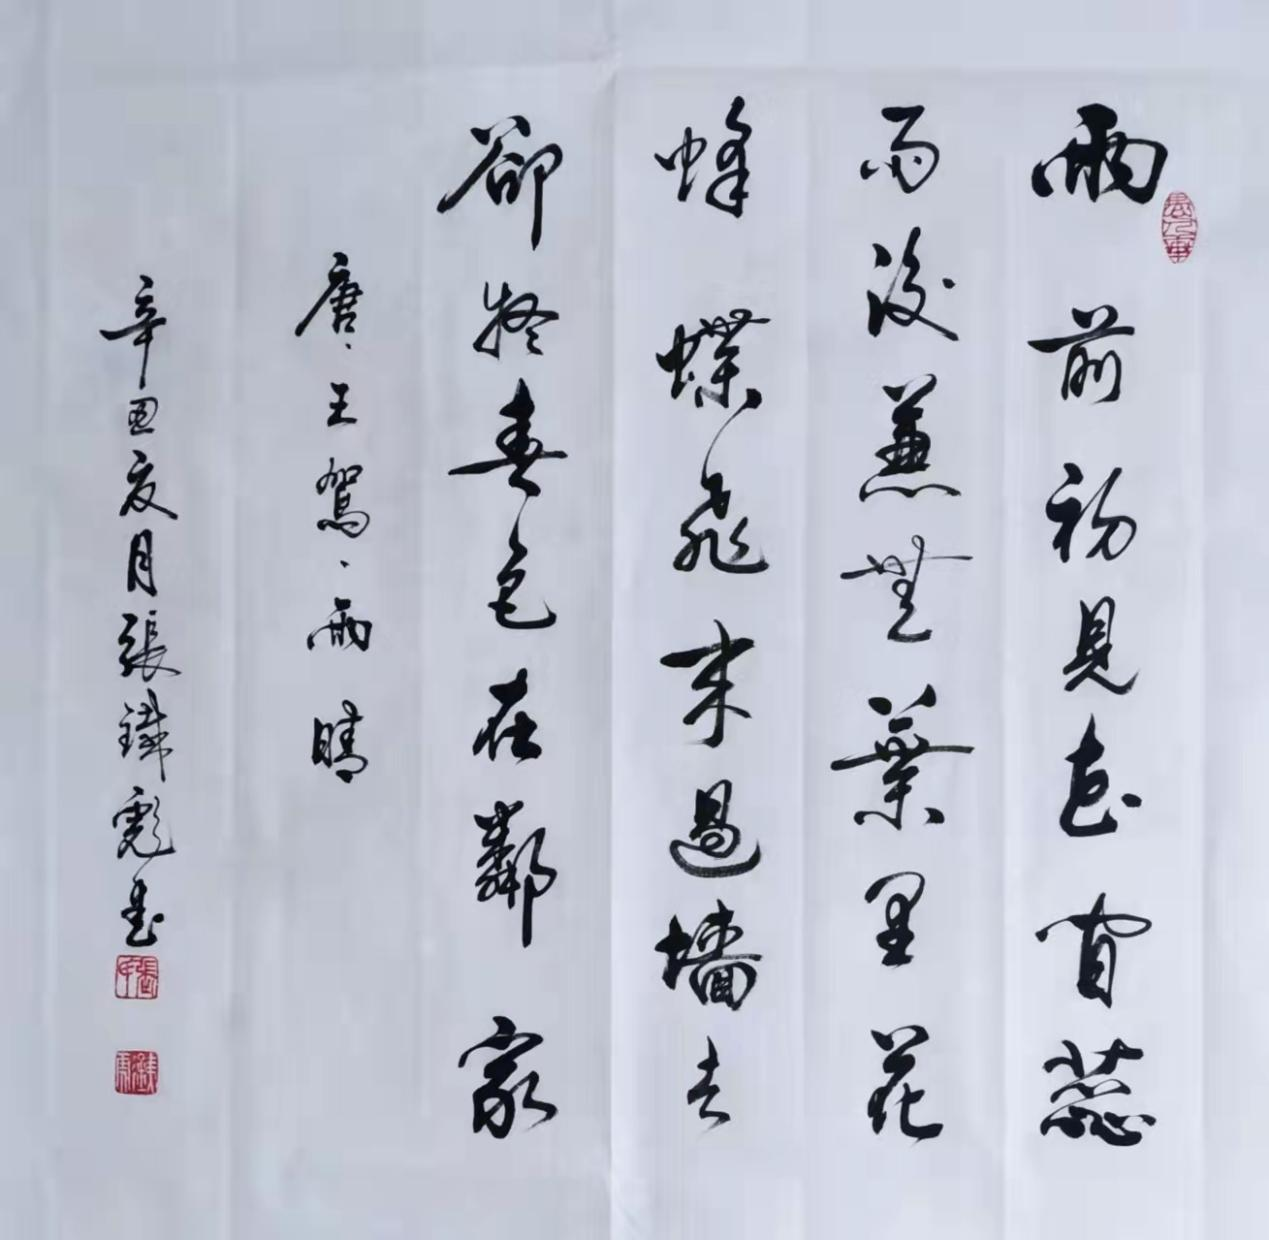 雨前初見花間蕊
雨後兼無葉里花
蜂蝶飛來過墻去
卻疑春色在鄰家
唐、王駕、雨晴
辛丑夏月張瑋彪書